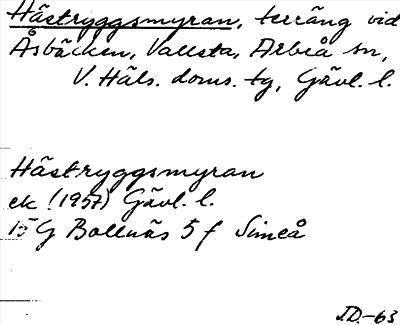 Hästryggsmyran, terräng vid
Åsbäcken, Vallsta, Arbrå sn,
V. Häls. doms. tg, Gävl. l.
Hästryggsmyran
ek. (1957) Gävl. l.
15 G Bollnäs 5 f Simeå
J.D.-63